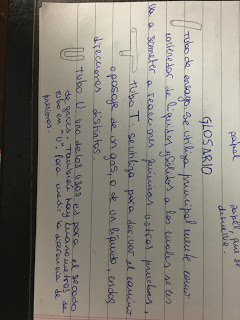 papel
papel, pues
disuelve.
GLOSARIO
Tubo de ensayo: se utiliza principalmente como
contenedor de líquidos y sólidos a los cuales se les
va a someter a reacciones químicas u otras pruebas,
Tubo T: se utiliza para derivar el camino
o pasaje de un gas, o de un líquido, en dos
direcciones distintas.
Tubo U: uno de los usos es para el secado
de gases. También hay manómetros de
tubo en "U". Para medir la diferencia de
presiones.